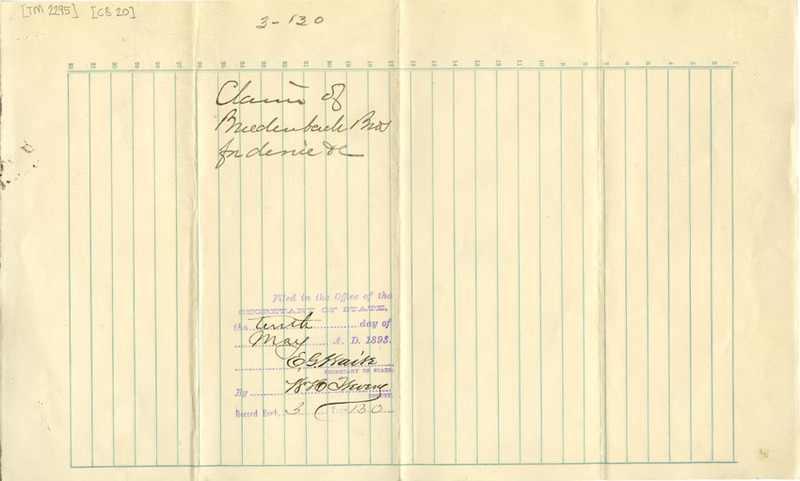 [TM 2295] [CB 20]
3-130
Claim of
Breidenbach Bros
for device &c
Filed in the Office of the
SECRETARY OF STATE,
the tenth day of
May A. D. 1893.
E.G. Waite
SECRETARY OF STATE
By
DEPUTY.
Record Book, 3 Page 130